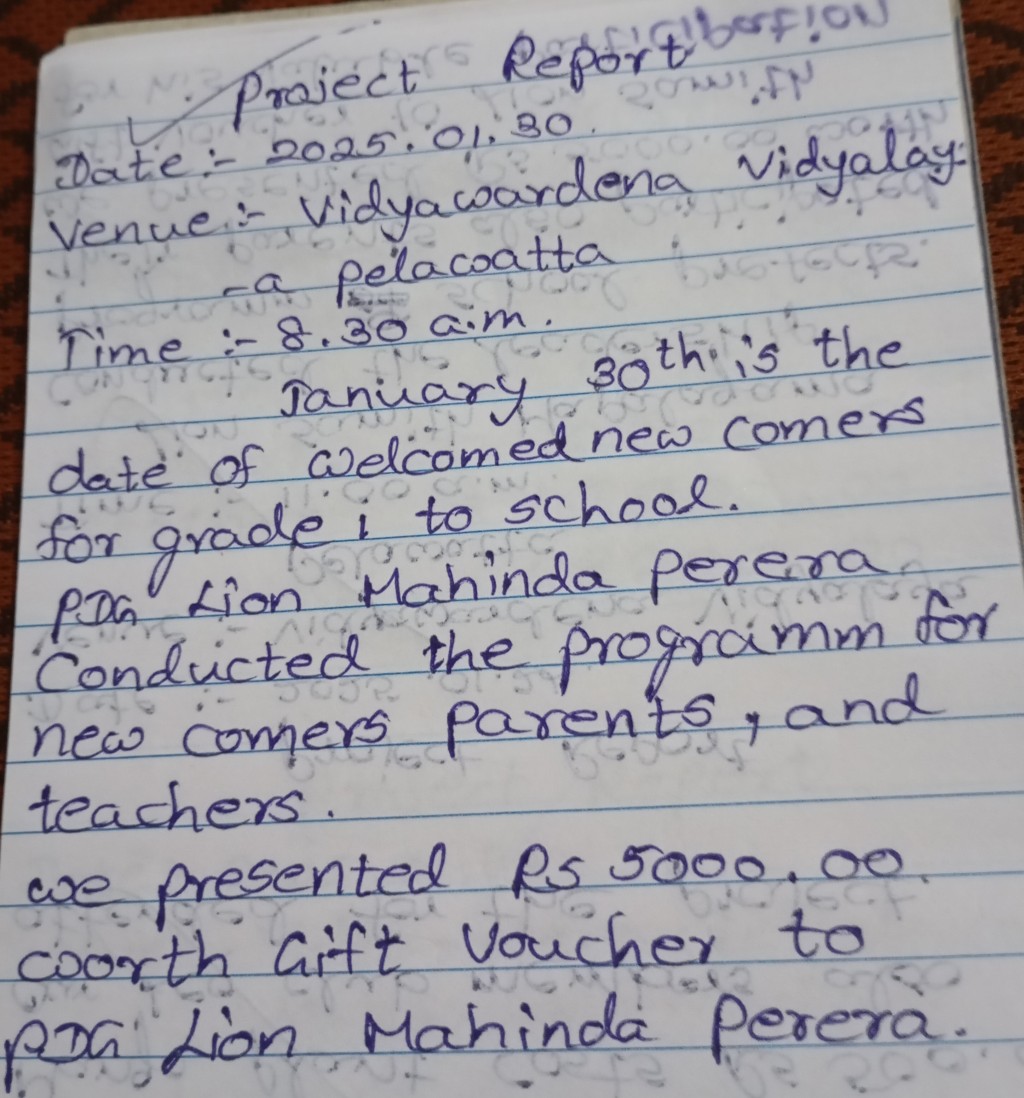 Project Report
Date :- 2025.01.30.
Venue :- Vidyawardena Vidyalay-
-a pelawatta
Time :- 8.30 a.m.
January 30th is the
date of welcomed new comers
for grade 1 to school.
PDG Lion Mahinda Perera
Conducted the programm for
new comers parents, and
teachers.
we presented Rs 5000.00.
worth Gift Voucher to
PDG Lion Mahinda Perera.